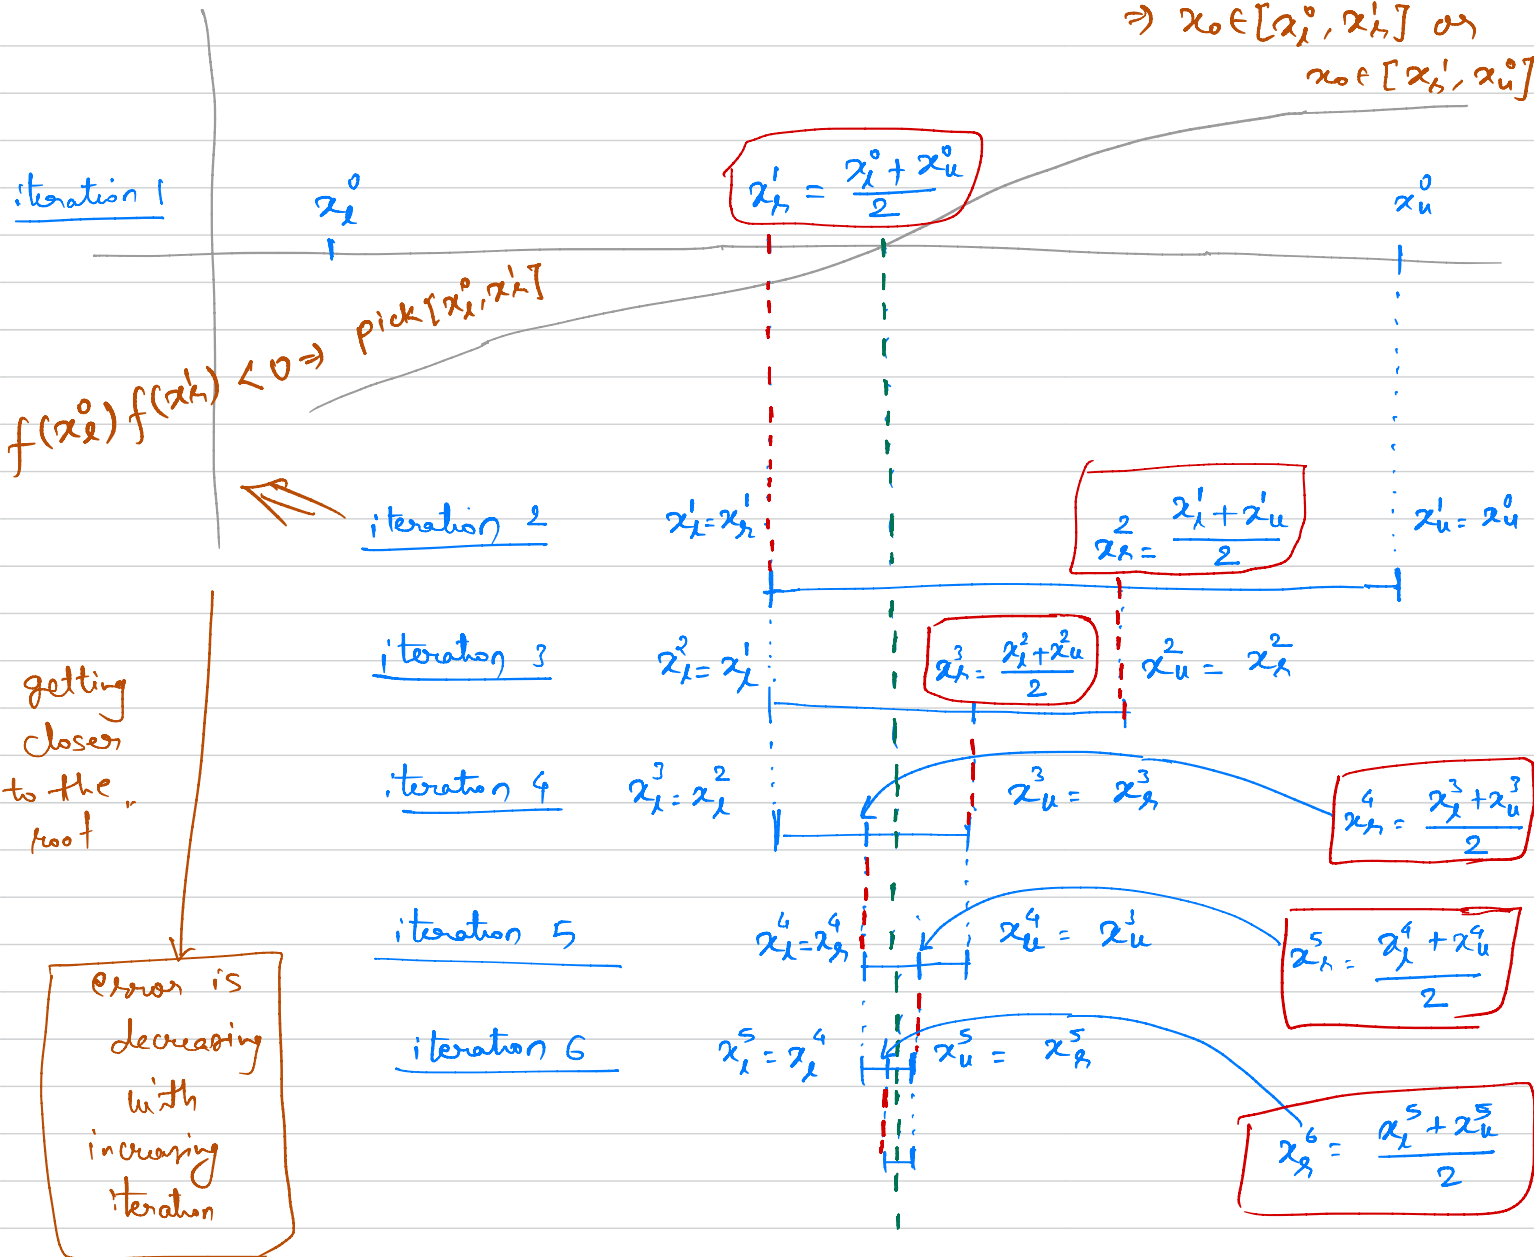 ⇒ x₀ ∈ [x_l^0, x_r^1] or
x₀ ∈ [x_r^1, x_u^0]
iteration 1
x_l^0
x_r^1 = (x_l^0 + x_u^0)/2
x_u^0
f(x_l^0) f(x_r^1) < 0 ⇒ pick [x_l^0, x_r^1]
iteration 2
x_l^1 = x_r^1
x_r^2 = (x_l^1 + x_u^1)/2
x_u^1 = x_u^0
iteration 3
x_l^2 = x_l^1
x_r^3 = (x_l^2 + x_u^2)/2
x_u^2 = x_r^2
getting
closer
to the
root
iteration 4
x_l^3 = x_l^2
x_u^3 = x_r^3
x_r^4 = (x_l^3 + x_u^3)/2
iteration 5
x_l^4 = x_r^4
x_u^4 = x_u^3
x_r^5 = (x_l^4 + x_u^4)/2
error is
decreasing
with
increasing
iteration
iteration 6
x_l^5 = x_l^4
x_u^5 = x_r^5
x_r^6 = (x_l^5 + x_u^5)/2